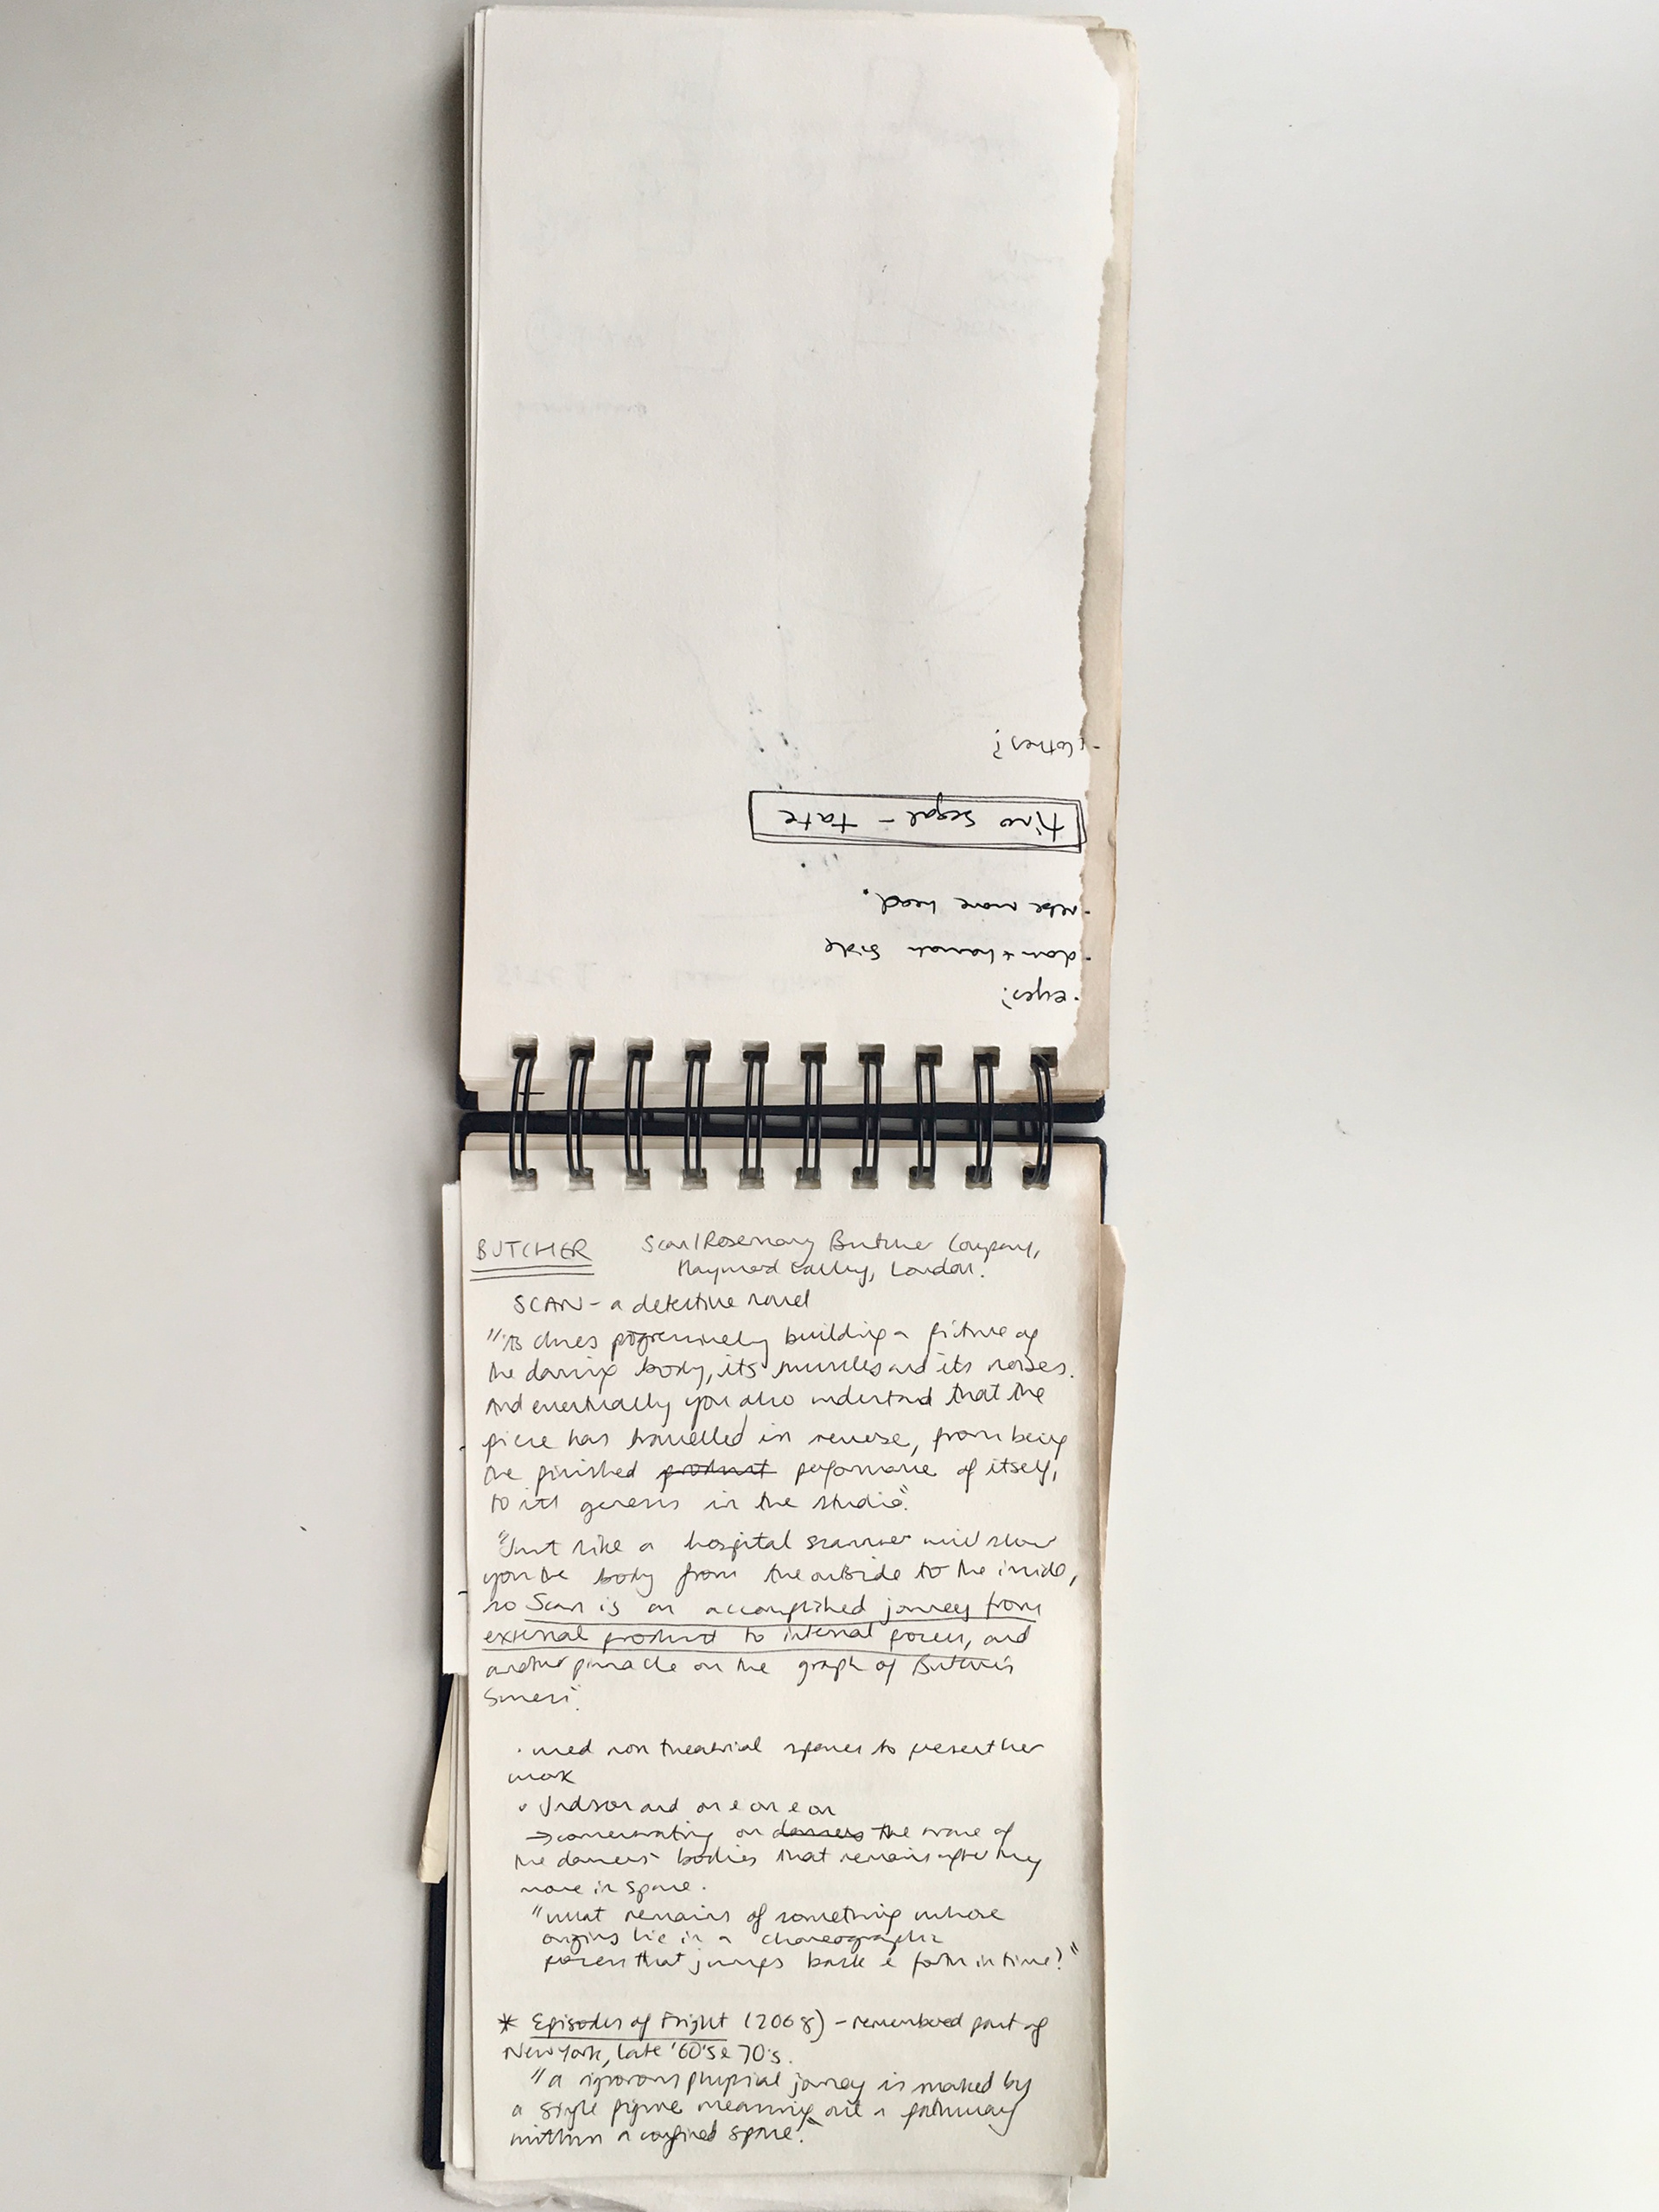 · eyes?
· dan + hannah side
· rebe more head.
tino segal – tate
- clothes?
BUTCHER Scan/Rosemary Butcher Company,
Hayward Gallery, London.
SCAN – a detective novel
"As clues progressively building a picture of
the dancing body, its muscles and its noises.
And eventually you also understand that the
piece has travelled in reverse, from being
the finished product performance of itself,
to its genesis in the studio".
"Just like a hospital scanner will show
you the body from the outside to the inside,
so Scan is an accomplished journey from
external product to internal process, and
another pinnacle on the graph of Butcher's
".
· used non theatrical spaces to present her
work
· Judson and
→ concentrating on dancers the trace of
the dancers' bodies that remains after they
move in space.
"what remains of something whose
origins lie in a choreographic
process that jumps back & forth in time?"
* Episodes of Flight (2008) – remembered part of
New York, late '60's & 70's.
"a rigorous physical journey is marked by
a single figure measuring out a pathway
within a confined space."